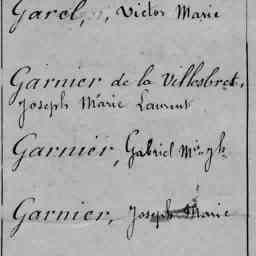 Garel, Victor Marie
Garnier de la Villesbret,
Joseph Marie Laurent
Garnier, Gabriel
Garnier, Joseph Marie